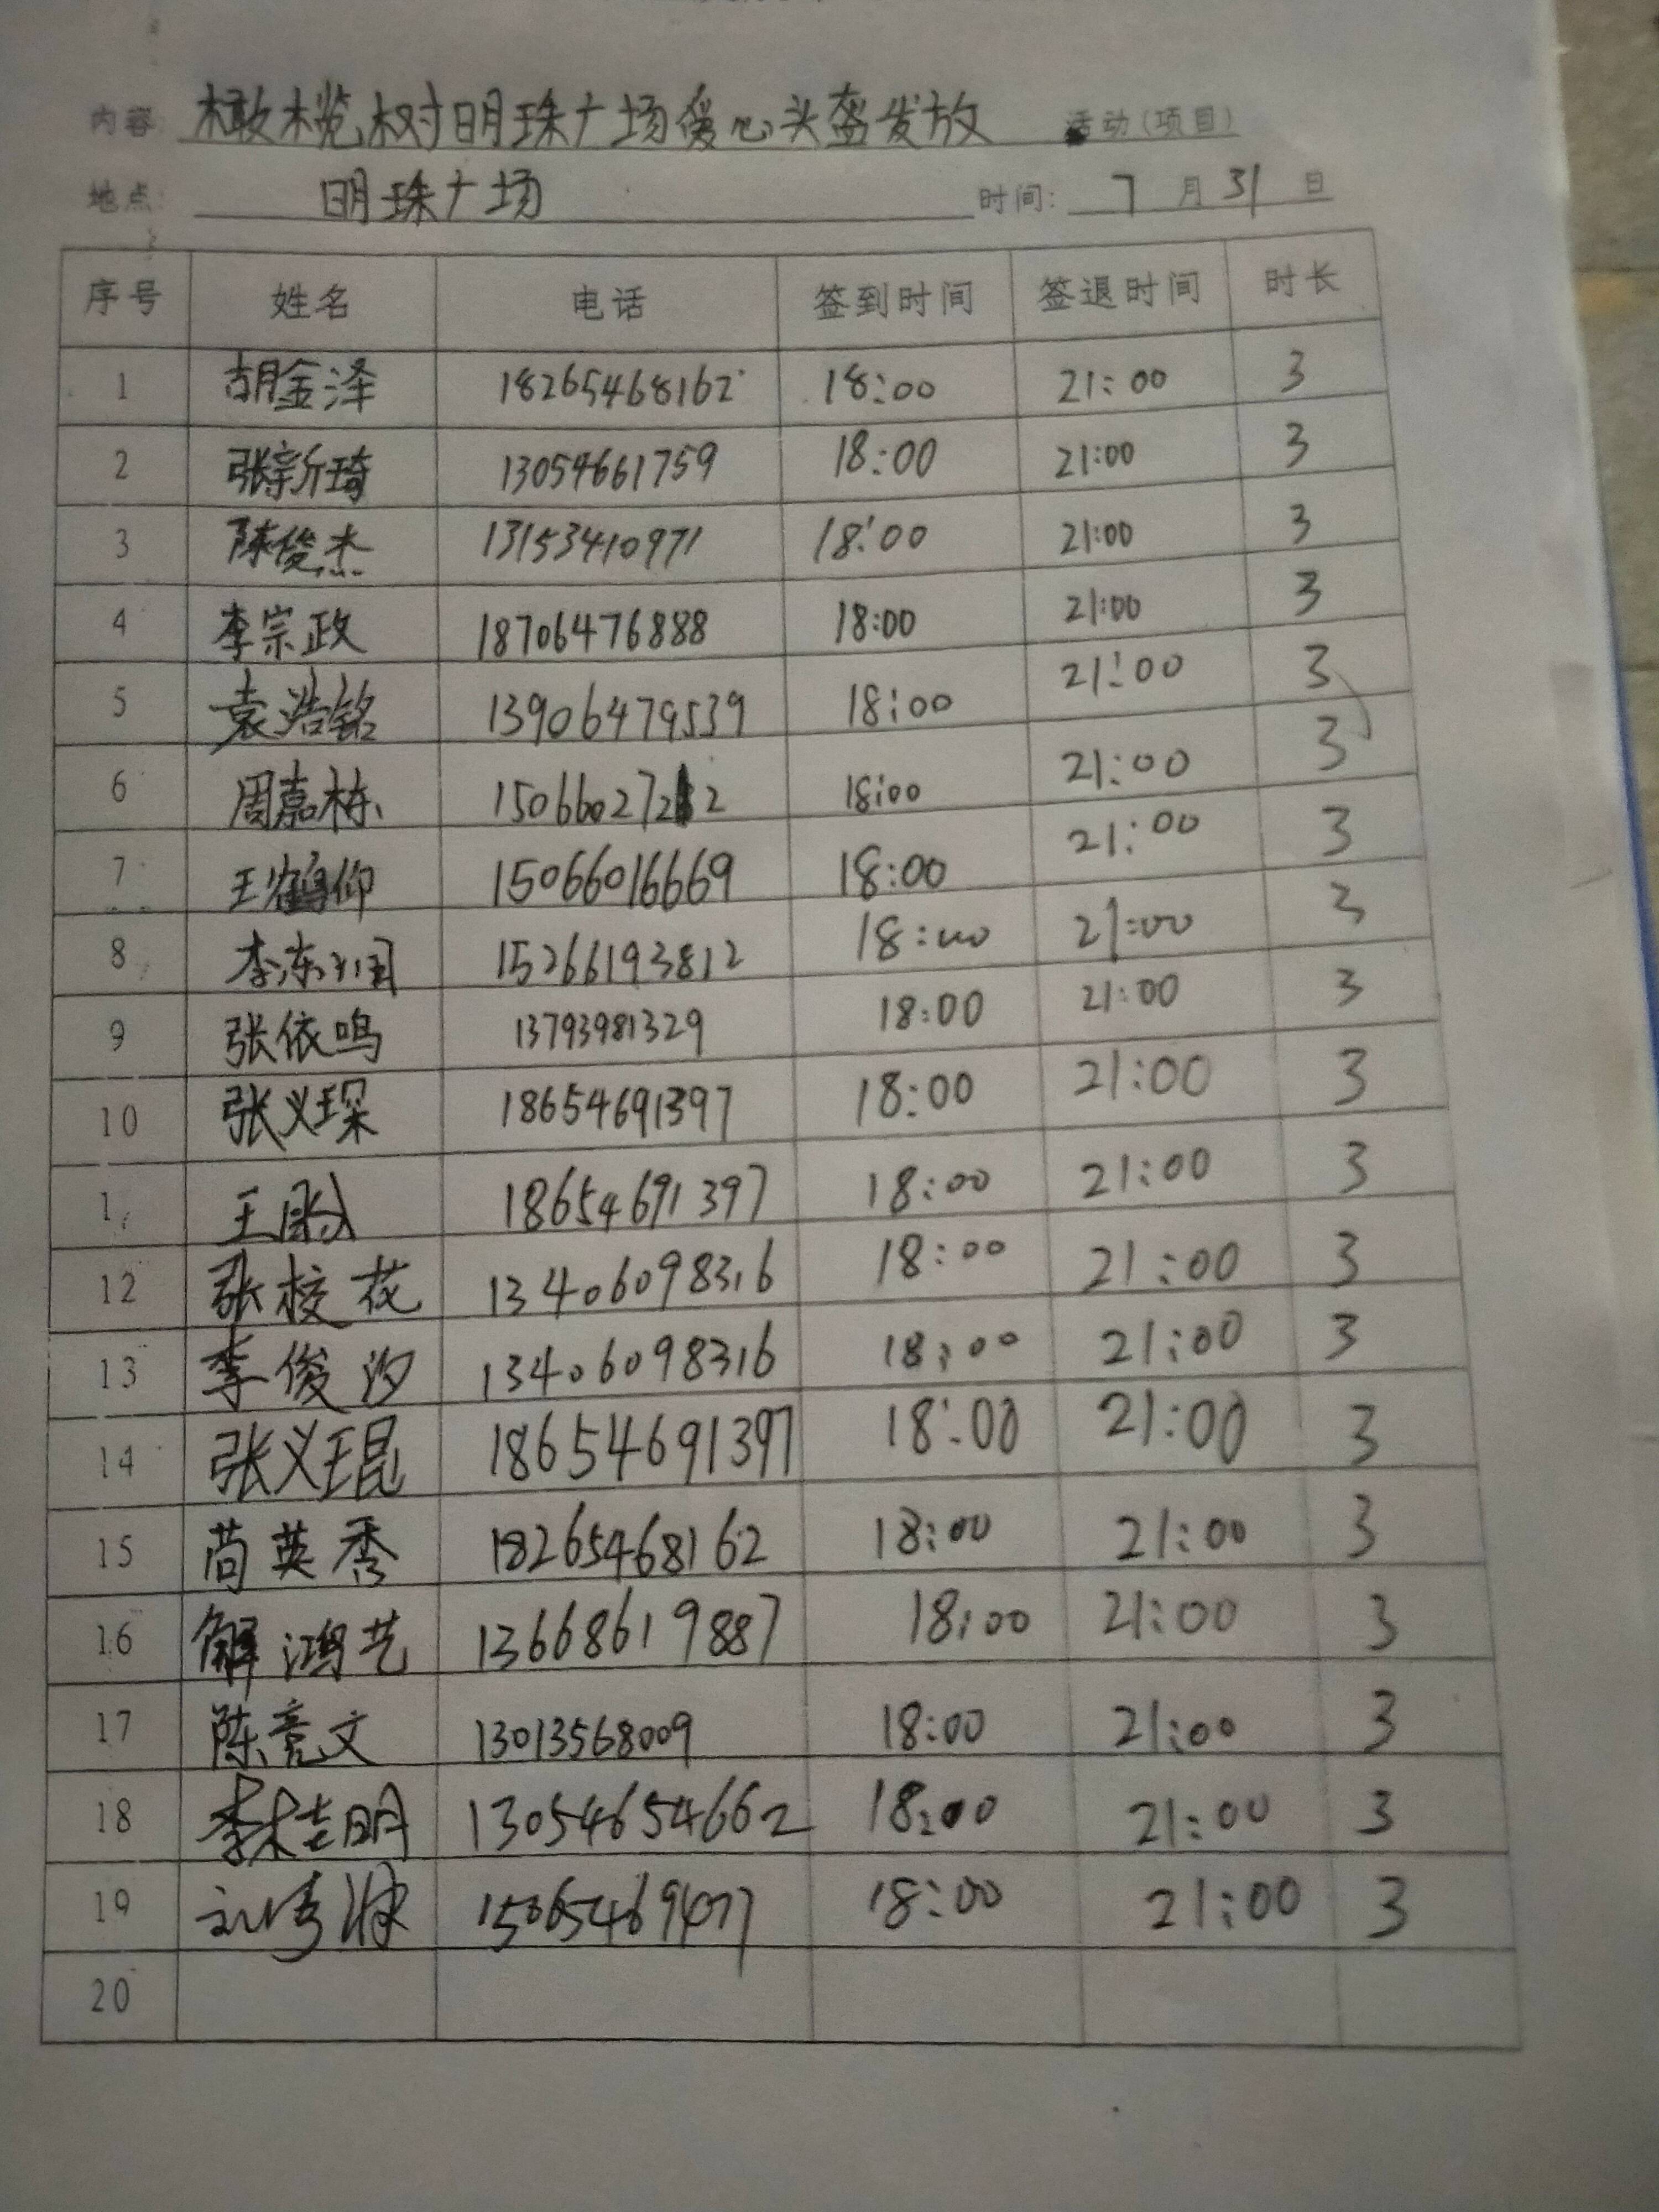 内容: 橄榄树明珠广场爱心头盔发放 活动(项目)
地点: 明珠广场 时间: 7 月 31 日
序号 姓名 电话 签到时间 签退时间 时长
1 胡金泽 18265468162 18:00 21:00 3
2 张新琦 13054661759 18:00 21:00 3
3 陈俊杰 13153410971 18:00 21:00 3
4 李宗政 18706476888 18:00 21:00 3
5 袁浩铭 13906479539 18:00 21:00 3
6 周嘉栋 18:00 21:00 3
7 王鹤仰 15066016669 18:00 21:00 3
8 15266193812 18:00 21:00 3
9 张依鸣 13793981329 18:00 21:00 3
10 张义琛 18654691397 18:00 21:00 3
1 18654691397 18:00 21:00 3
12 张校花 13406098316 18:00 21:00 3
13 李俊汐 13406098316 18:00 21:00 3
14 张义琨 18654691397 18:00 21:00 3
15 苘英秀 18265468162 18:00 21:00 3
16 解鸿艺 13668619887 18:00 21:00 3
17 陈竞文 13013568009 18:00 21:00 3
18 李桂明 13054654662 18:00 21:00 3
19 18:00 21:00 3
20